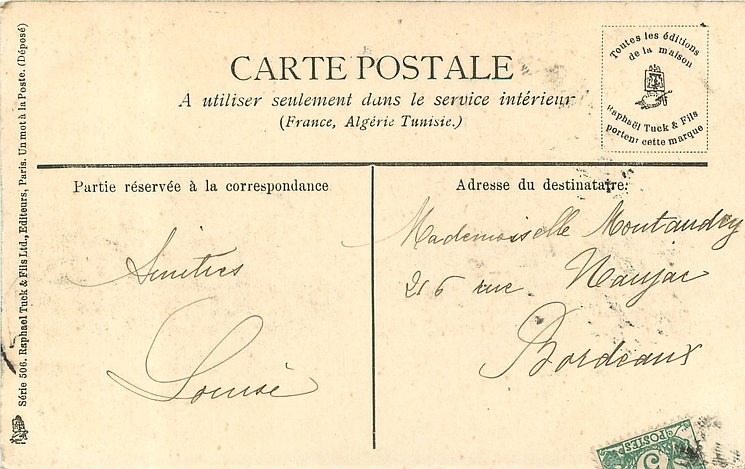 CARTE POSTALE
A utiliser seulement dans le service intérieur
(France, Algérie Tunisie.)
Toutes les éditions
de la maison
Raphaël Tuck & Fils
portent cette marque
Série 506. Raphael Tuck & Fils Ltd., Editeurs, Paris. Un mot à la Poste. (Déposé)
Partie réservée à la correspondance
Amitiés
Louise
Adresse du destinataire:
Mademoiselle Montaudry
216 rue Naujac
Bordeaux
POSTES
5